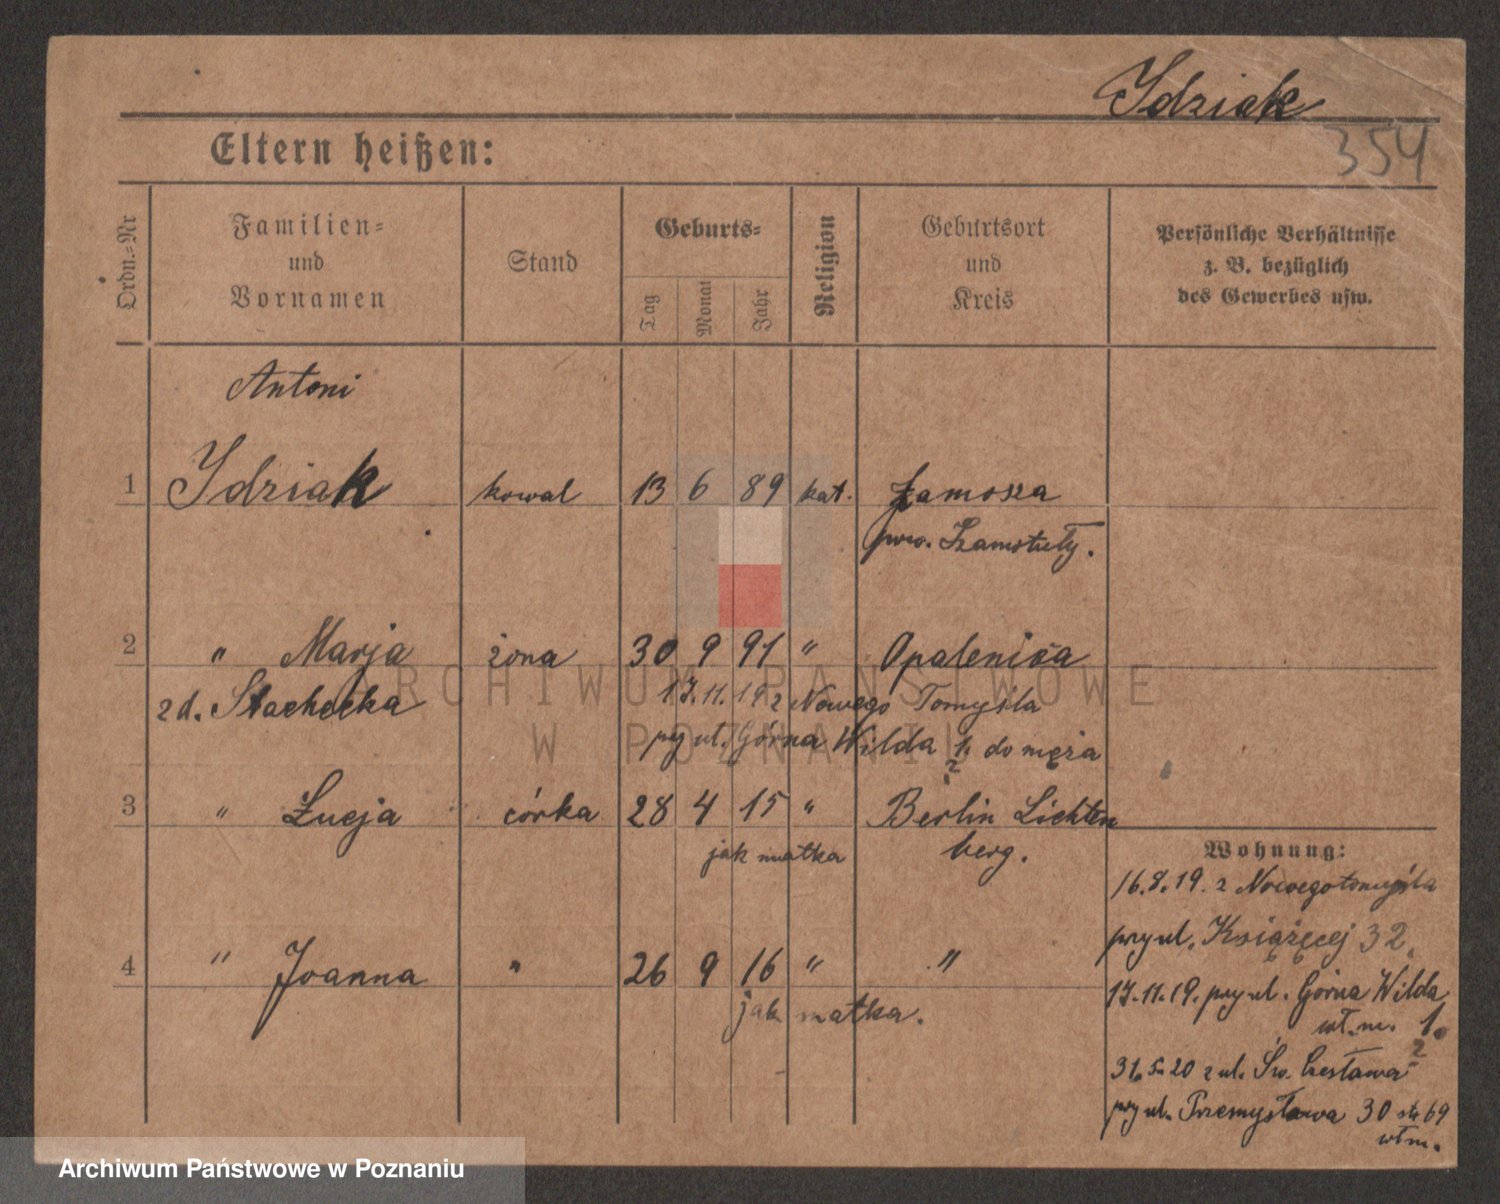 Idziak
354
Eltern heißen:
Ordn.=Nr
Familien=
und
Vornamen
Stand
Geburts=
Tag
Monat
Jahr
Religion
Geburtsort
und
Kreis
Persönliche Verhältnisse
z. B. bezüglich
des Gewerbes usw.
Antoni
1 Idziak kowal 13 6 89 kat. Zamosza
pow. Szamotuły.
2 " Marja żona 30 9 91 " Opalenica
zd. Stachecka 17.11.19 z Nowego Tomyśla
przy ul. Górna Wilda 1. do męża
2
3 " Łucja córka 28 4 15 " Berlin Lichten
jak matka berg.
4 " Joanna " 26 9 16 " "
jak matka.
Wohnung:
16.8.19. z Nowegotomyśla
przy ul. Książęcej 32.
17.11.19. przy ul. Górna Wilda
wł.m. 1.
2
31.5.20 z ul. Św. Czesława
przy ul. Przemysłowa 30 69
włm.
ARCHIWUM PAŃSTWOWE
W POZNANIU
Archiwum Państwowe w Poznaniu